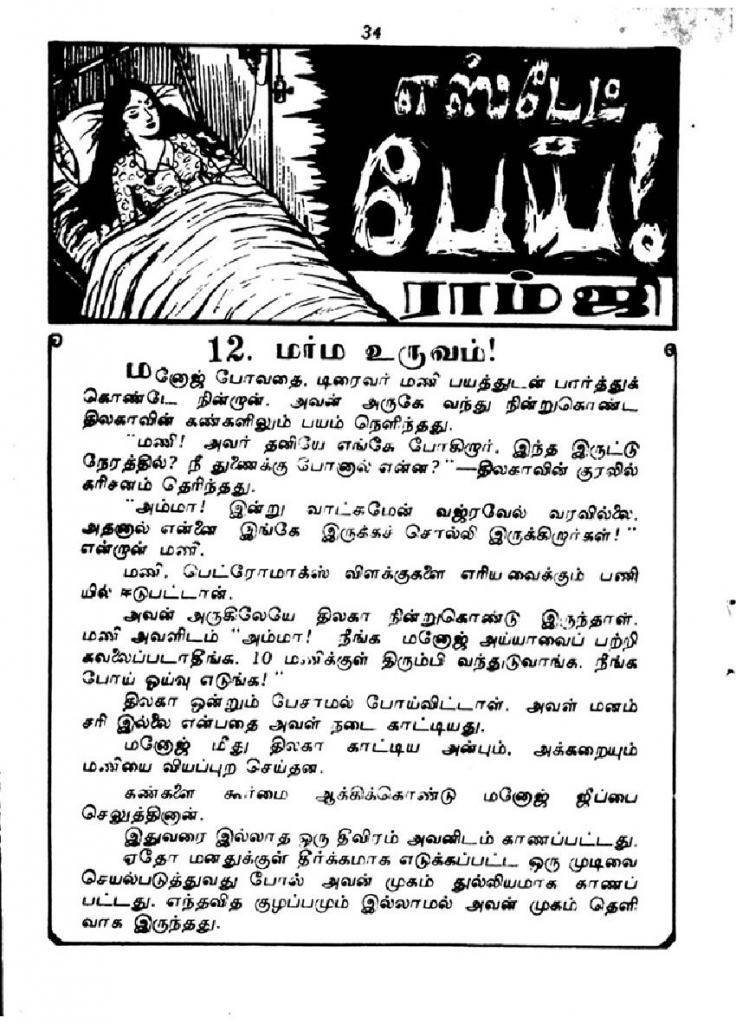 34
எஸ்டேட்
பேய்!
ராம்ஜி
12. மர்ம உருவம்!
மனோஜ் போவதை, டிரைவர் மணி பயத்துடன் பார்த்துக்
கொண்டே நின்றான். அவன் அருகே வந்து நின்றுகொண்ட
திலகாவின் கண்களிலும் பயம் நெளிந்தது.
"மணி! அவர் தனியே எங்கே போகிறார், இந்த இருட்டு
நேரத்தில்? நீ துணைக்கு போனால் என்ன?"—திலகாவின் குரலில்
கரிசனம் தெரிந்தது.
"அம்மா! இன்று வாட்சுமேன் வஜ்ரவேல் வரவில்லை.
அதனால் என்னை இங்கே இருக்கச் சொல்லி இருக்கிறார்கள்!"
என்றான் மணி.
மணி, பெட்ரோமாக்ஸ் விளக்குகளை எரியவைக்கும் பணி
யில் ஈடுபட்டான்.
அவன் அருகிலேயே திலகா நின்றுகொண்டு இருந்தாள்.
மணி அவளிடம் "அம்மா! நீங்க மனோஜ் அய்யாவைப் பற்றி
கவலைப்படாதீங்க. 10 மணிக்குள் திரும்பி வந்துடுவாங்க. நீங்க
போய் ஓய்வு எடுங்க!"
திலகா ஒன்றும் பேசாமல் போய்விட்டாள். அவள் மனம்
சரி இல்லை என்பதை அவள் நடை காட்டியது.
மனோஜ் மீது திலகா காட்டிய அன்பும், அக்கறையும்
மணியை வியப்புற செய்தன.
கண்களை கூர்மை ஆக்கிக்கொண்டு மனோஜ் ஜீப்பை
செலுத்தினான்.
இதுவரை இல்லாத ஒரு தீவிரம் அவனிடம் காணப்பட்டது.
ஏதோ மனதுக்குள் தீர்க்கமாக எடுக்கப்பட்ட ஒரு முடிவை
செயல்படுத்துவது போல் அவன் முகம் துல்லியமாக காணப்
பட்டது. எந்தவித குழப்பமும் இல்லாமல் அவன் முகம் தெளி
வாக இருந்தது.